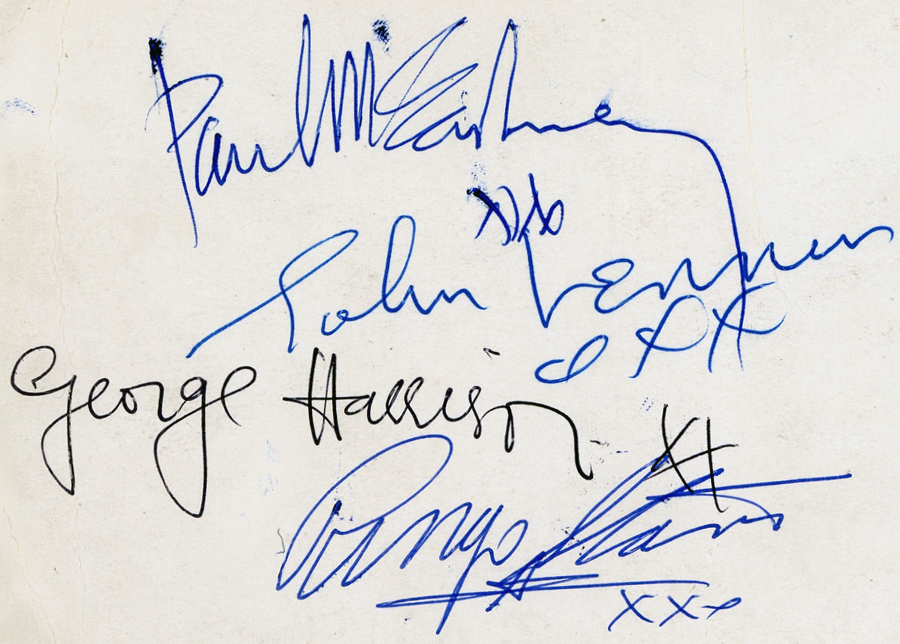 Paul McCartney
xxx
John Lennon
xx
George Harrison
xx
Ringo Starr
xxx